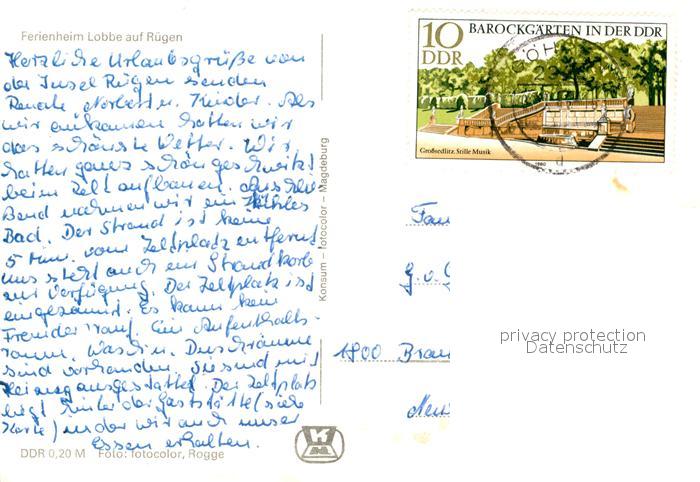 Ferienheim Lobbe auf Rügen
Herzliche Urlaubsgrüße von
der Insel Rügen senden
Renate Norbert u. Kinder. Als
wir ankamen hatten wir
das schönste Wetter. Wir
hatten ganz schön geschwitzt
beim Zelt aufbauen. Anschlie-
ßend nahmen wir ein kühles
Bad. Der Strand ist keine
5 Min. vom Zeltplatz entfernt
uns steht auch ein Strandkorb
zur Verfügung. Der Zeltplatz ist
eingezäunt. Es kann kein
Fremder rauf. Ein Aufenthalts-
raum, Wasch u. Duschräume
sind vorhanden. Sie sind mit
Heizung ausgestattet. Der Zeltplatz
liegt hinter der Gaststätte (siehe
Karte) in der wir auch unser
Essen erhalten.
DDR 0,20 M Foto: fotocolor, Rogge
Konsum – fotocolor – Magdeburg
10 BAROCKGÄRTEN IN DER DDR
DDR
Großsedlitz, Stille Musik
1980
Fam
G. v.
1800 Bran
privacy protection
Datenschutz